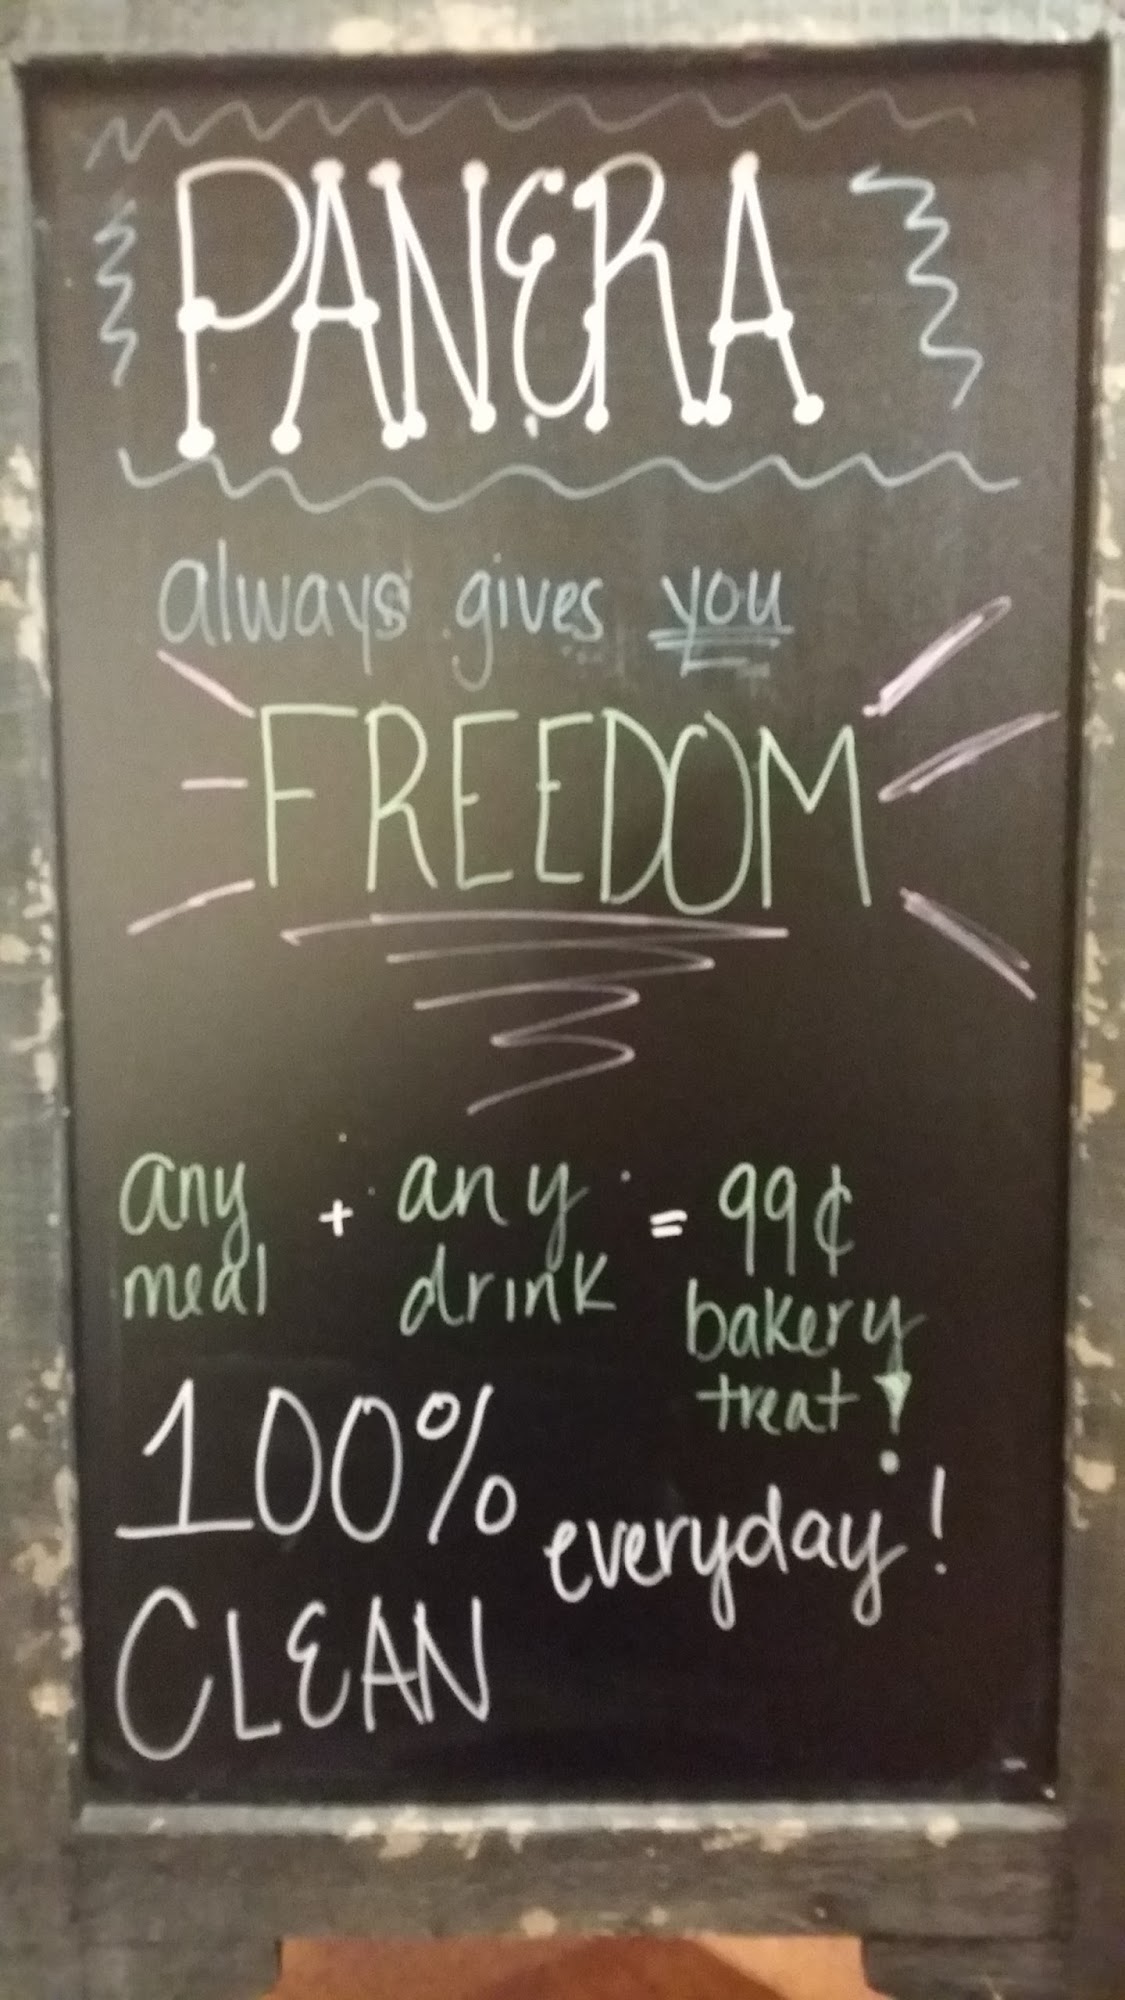 PANERA
always gives you
FREEDOM
any meal + any drink = 99¢ bakery treat!
100% CLEAN everyday!